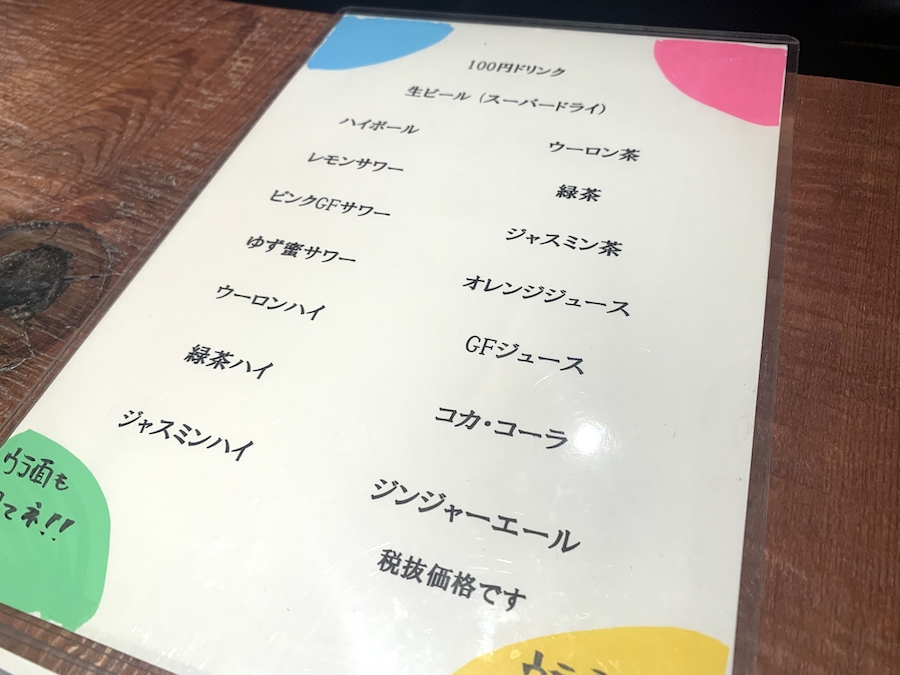 100円ドリンク
生ビール (スーパードライ)
ハイボール
レモンサワー
ピンクGFサワー
ゆず蜜サワー
ウーロンハイ
緑茶ハイ
ジャスミンハイ
ウーロン茶
緑茶
ジャスミン茶
オレンジジュース
GFジュース
コカ・コーラ
ジンジャーエール
税抜価格です
ウラ面も
てネ!!